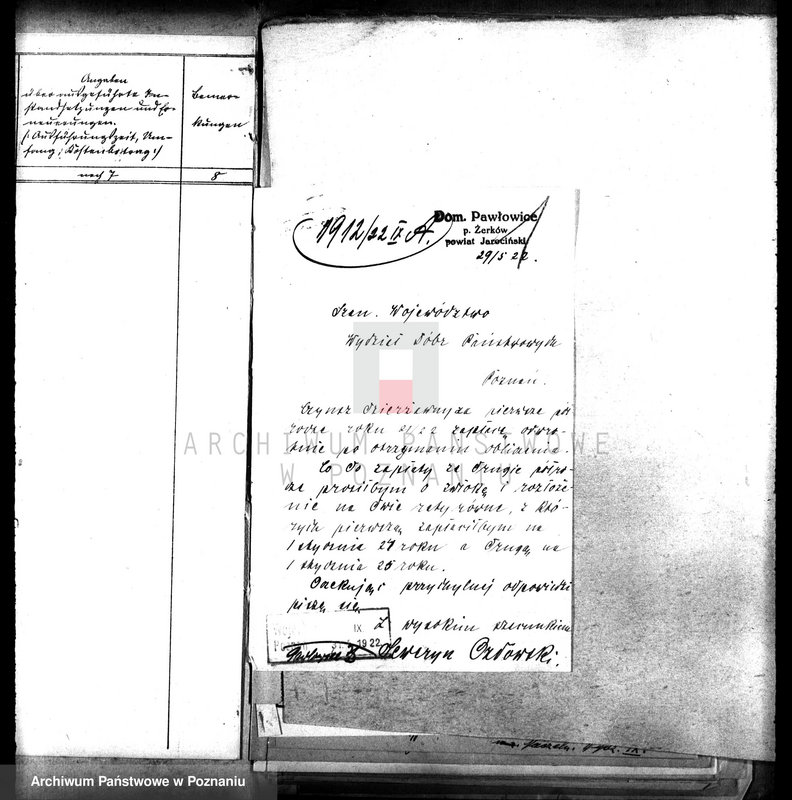 Angaben
über ausgeführte In-
standsetzungen und Er-
neuerungen.
(: Ausführungszeit, Um-
fang, Kostenbetrag :)
Bemer-
kungen
noch 7
8
1912/22 IX A.
Dom. Pawłowice
p. Żerków
powiat Jarociński
29/5 22.
Województwo
Wydział Dóbr Państwowych
Poznań.
Czynsz dzierżawny za pierwsze pół
rocze roku 21/22 zapłacę odwro-
tnie po otrzymaniu obliczenia.
Co do zapłaty za drugie półro-
cze prosiłbym o zwłokę i rozłoże-
nie na dwie raty równe, z któ-
rych pierwszą zapłaciłbym na
1 stycznia roku a drugą na
1 stycznia roku.
Oczekując przychylnej odpowiedzi
piszę się
Z wysokim szacunkiem
Seweryn
IX
1922
ARCHIWUM PAŃSTWOWE
W POZNANIU
Archiwum Państwowe w Poznaniu